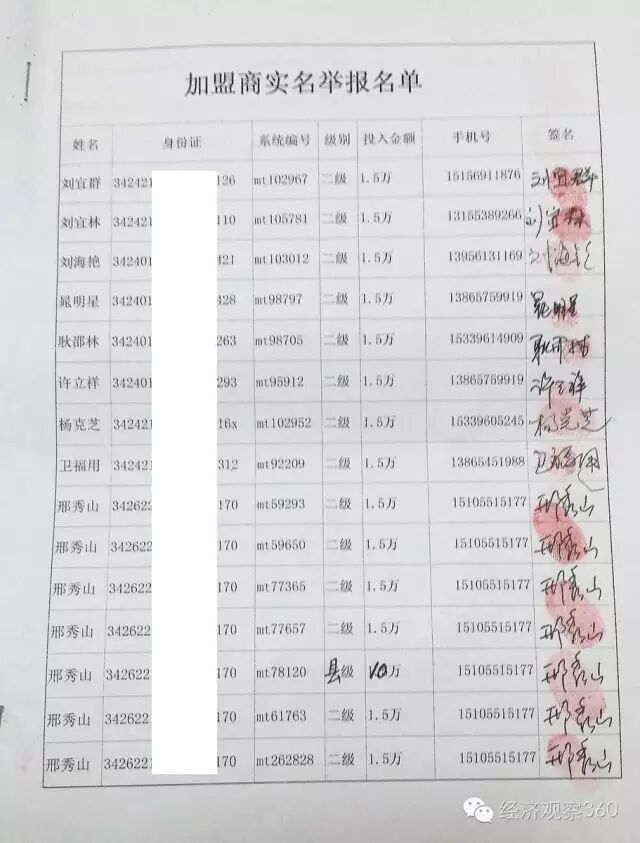 加盟商实名举报名单
姓名 身份证 系统编号 级别 投入金额 手机号 签名
刘宜群 342421 126 mt102967 二级 1.5万 15156911876 刘宜群
刘宜林 342421 110 mt105781 二级 1.5万 13155389266 刘宜林
刘海艳 342401 421 mt103012 二级 1.5万 13956131169 刘海艳
晁明星 342401 428 mt98797 二级 1.5万 13865759919 晁明星
耿邵林 342401 263 mt98705 二级 1.5万 15339614909
许立祥 342401 293 mt95912 二级 1.5万 13865759919 许立祥
杨克芝 342421 16x mt102952 二级 1.5万 15339605245 杨克芝
卫福用 342421 312 mt92209 二级 1.5万 13865451988 卫福用
邢秀山 342622 170 mt59293 二级 1.5万 15105515177 邢秀山
邢秀山 342622 170 mt59650 二级 1.5万 15105515177 邢秀山
邢秀山 342622 170 mt77365 二级 1.5万 15105515177 邢秀山
邢秀山 342622 170 mt77657 二级 1.5万 15105515177 邢秀山
邢秀山 342622 170 mt78120 县级 10万 15105515177 邢秀山
邢秀山 342622 170 mt61763 二级 1.5万 15105515177 邢秀山
邢秀山 342622 170 mt262828 二级 1.5万 15105515177 邢秀山
经济观察360